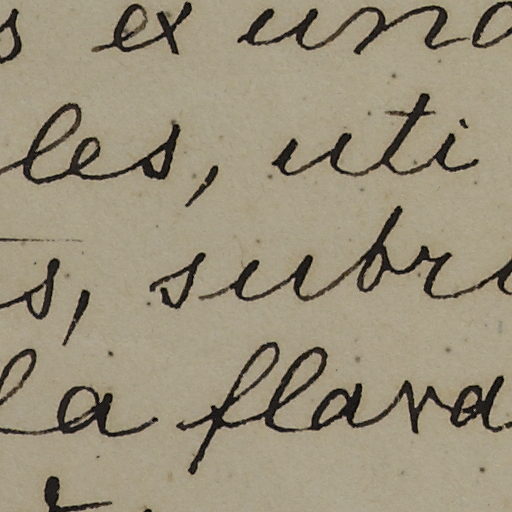 s ex una
les, uti
s, subri
la flava